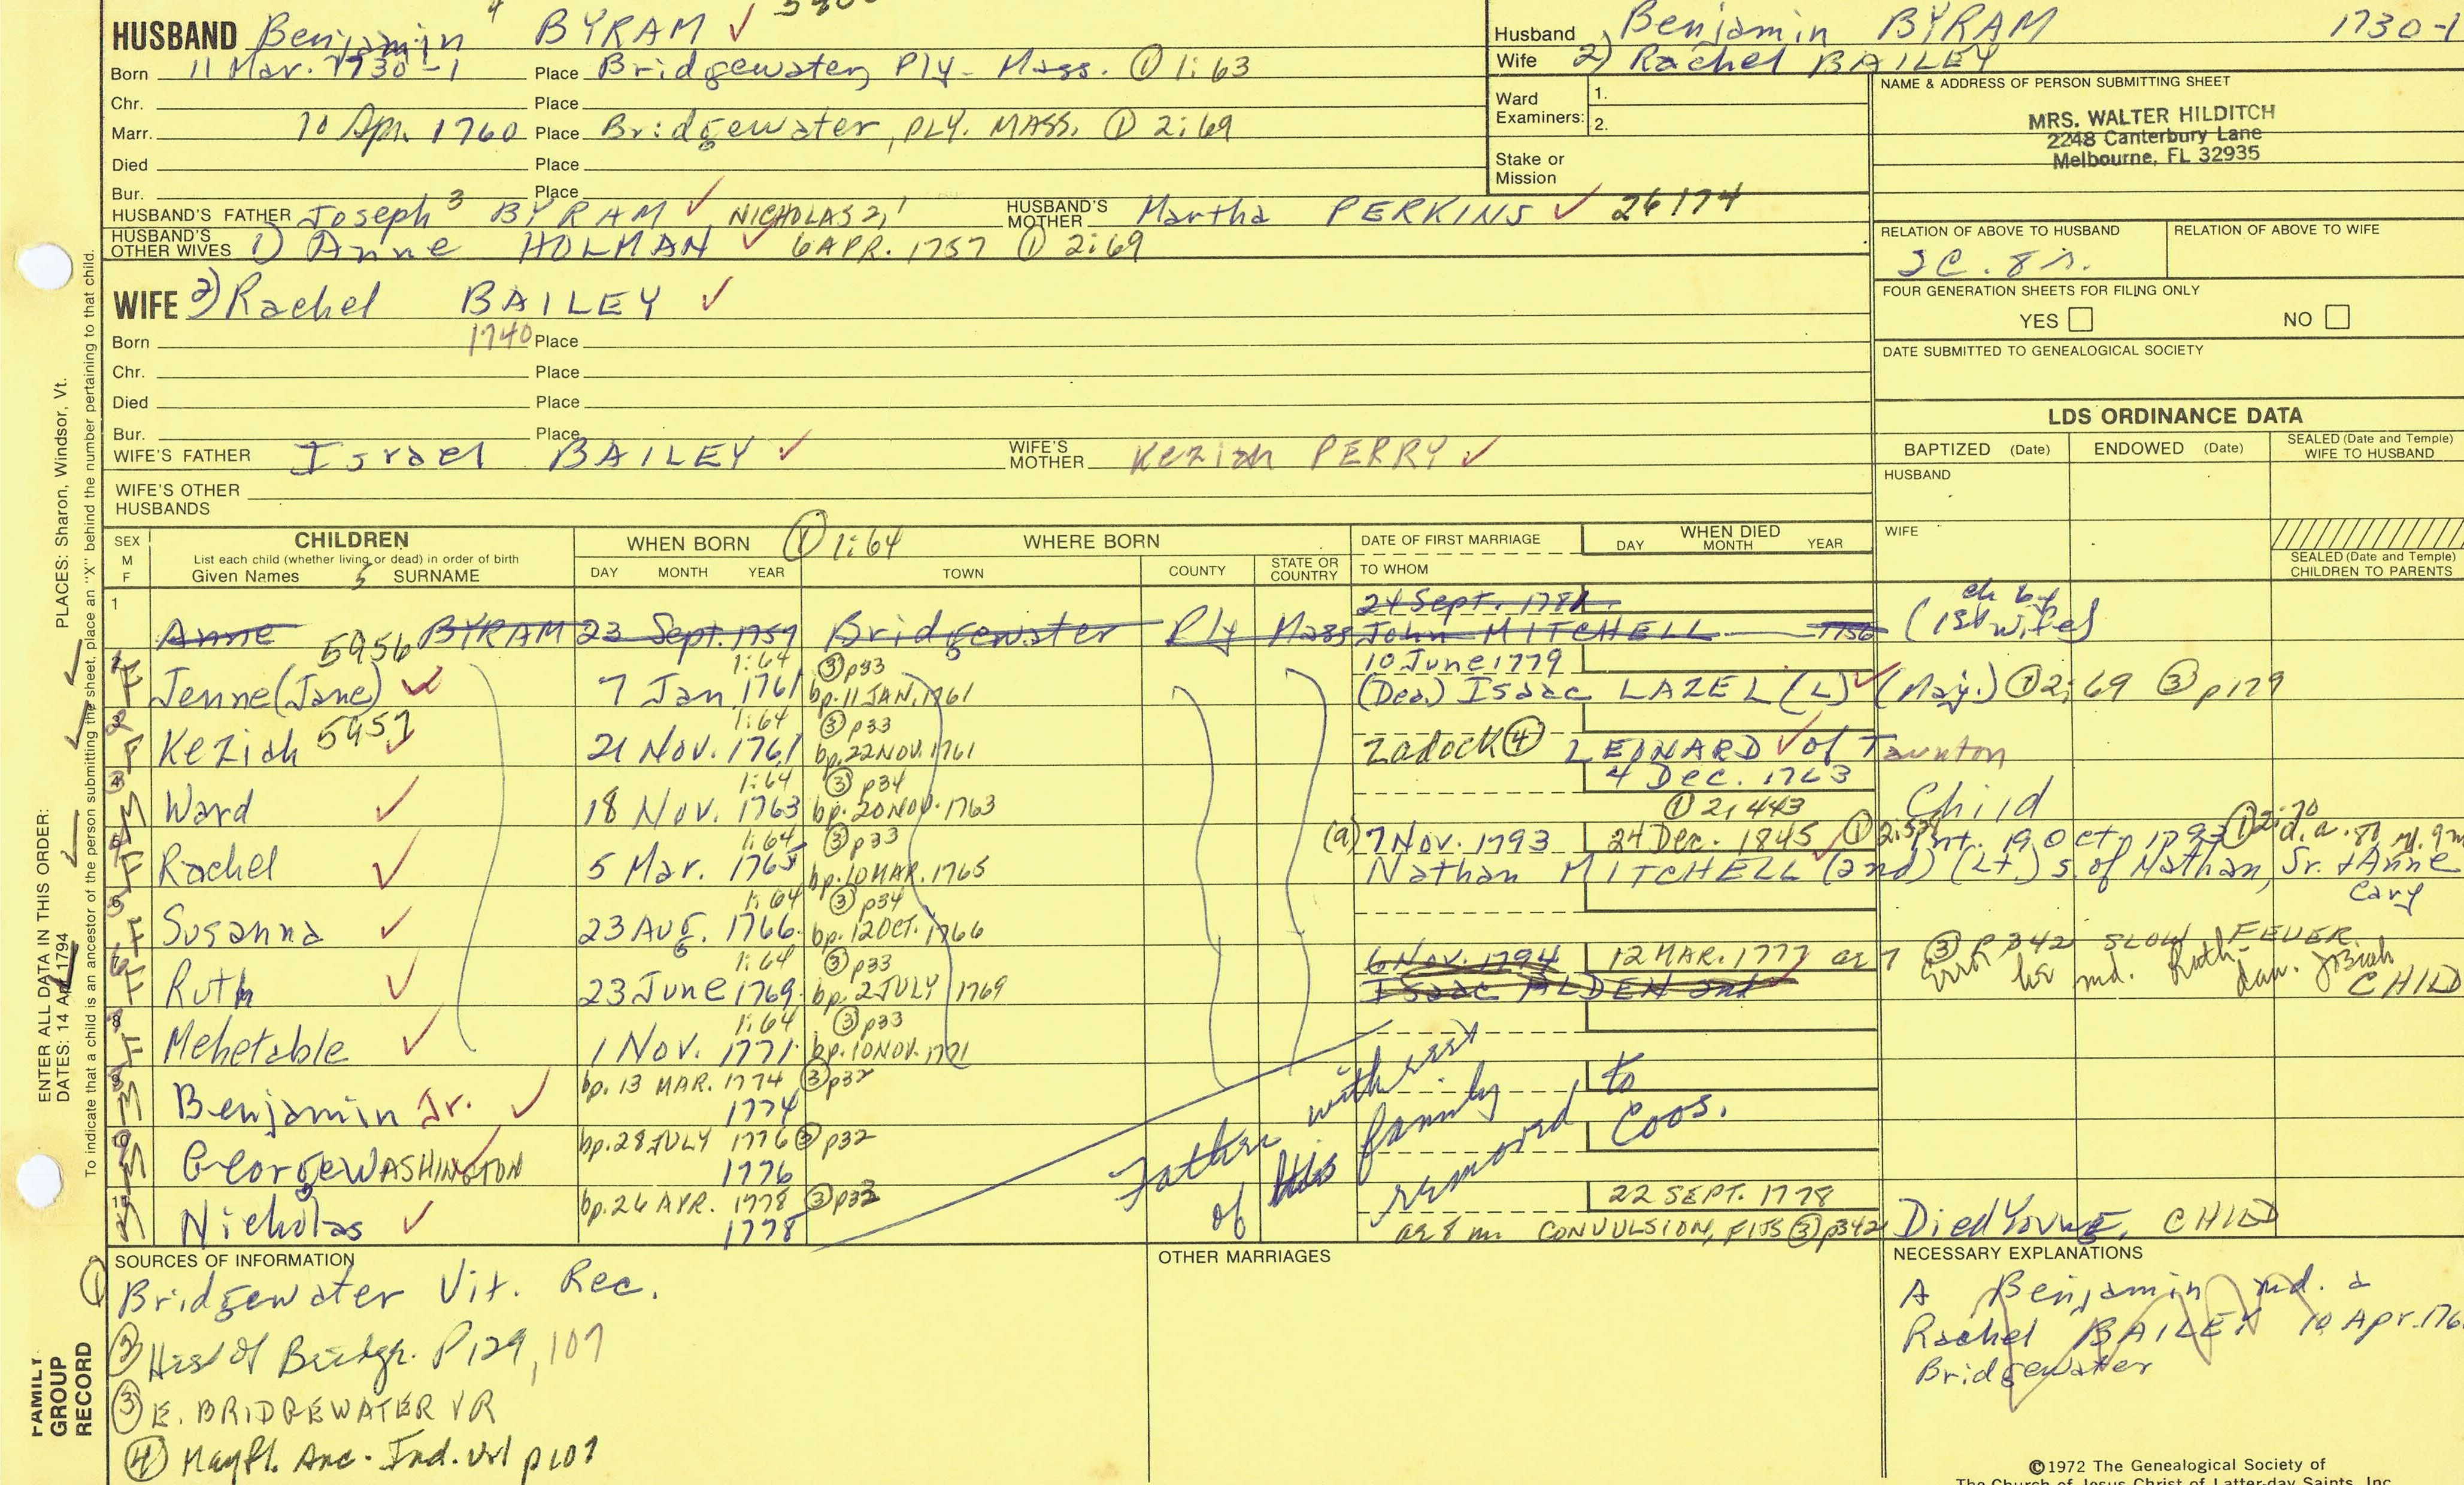 HUSBAND Benjamin 4 BYRAM ✓
Born 11 Mar. 1730-1 Place Bridgewater, Ply. Mass. ① 1:63
Chr. Place
Marr. 10 Apr. 1760 Place Bridgewater, PLY. MASS. ① 2:69
Died Place
Bur. Place
HUSBAND'S FATHER Joseph 3 BYRAM ✓ NICHOLAS 2,1 HUSBAND'S MOTHER Martha PERKINS ✓ 26174
HUSBAND'S OTHER WIVES 1) Anne HOLMAN ✓ 6 APR. 1757 ① 2:69
WIFE 2) Rachel BAILEY ✓
Born 1740 Place
Chr. Place
Died Place
Bur. Place
WIFE'S FATHER Israel BAILEY ✓ WIFE'S MOTHER Keziah PERRY ✓
WIFE'S OTHER HUSBANDS
Husband Benjamin BYRAM 1730-1
Wife 2) Rachel BAILEY
Ward Examiners: 1.
2.
Stake or Mission
NAME & ADDRESS OF PERSON SUBMITTING SHEET
MRS. WALTER HILDITCH
2248 Canterbury Lane
Melbourne, FL 32935
RELATION OF ABOVE TO HUSBAND RELATION OF ABOVE TO WIFE
2C. 8r.
FOUR GENERATION SHEETS FOR FILING ONLY
YES NO
DATE SUBMITTED TO GENEALOGICAL SOCIETY
LDS ORDINANCE DATA
BAPTIZED (Date) ENDOWED (Date) SEALED (Date and Temple) WIFE TO HUSBAND
HUSBAND
WIFE
SEALED (Date and Temple) CHILDREN TO PARENTS
SEX M F CHILDREN
List each child (whether living or dead) in order of birth
Given Names 5 SURNAME
WHEN BORN ① 1:64 WHERE BORN
DAY MONTH YEAR TOWN COUNTY STATE OR COUNTRY
DATE OF FIRST MARRIAGE
TO WHOM
WHEN DIED
DAY MONTH YEAR
24 Sept. 178
1 Anne BYRAM 23 Sept. 1757 Bridgewater Ply Mass John MITCHELL 1756 (ch by 1st wife)
5956 1:64 ③ p33 10 June 1779
F Jenne (Jane) ✓ 7 Jan 1761 bp. 11 JAN. 1761 (Dea.) Isaac LAZEL (L) ✓ (Maj.) ① 2:69 ③ p129
5957 1:64 ③ p33
F Keziah 21 Nov. 1761 bp. 22 NOV. 1761 Zadock ④ LEONARD ✓ of Taunton
1:64 ③ p34 4 Dec. 1763
M Ward ✓ 18 Nov. 1763 bp. 20 NOV. 1763 ① 2:443 Child
1:64 ③ p33 (a) 7 Nov. 1793 24 Dec. 1845 ① int. 19 Oct. 1793 ① 2:70 d. a. 80
F Rachel ✓ 5 Mar. 1765 bp. 10 MAR. 1765 Nathan MITCHELL (2nd) (Lt.) s. of Nathan, Sr. + Anne Cary
1:64 ③ p34
F Susanna ✓ 23 Aug. 1766 bp. 12 OCT. 1766
1:64 ③ p33 6 Nov. 1794 12 MAR. 1777 ae 7 ③ P 342 SLOW FEVER
F Ruth ✓ 23 June 1769 bp. 2 JULY 1769 Isaac ALDEN 2nd Error he md. Ruth, dau. Josiah CHILD
1:64 ③ p33
F Mehetable ✓ 1 Nov. 1771 bp. 10 NOV. 1771
bp. 13 MAR. 1774 ③ p32
M Benjamin Jr. ✓ 1774
bp. 28 JULY 1776 ③ p32
M George WASHINGTON ✓ 1776
bp. 26 APR. 1778 ③ p33 22 SEPT. 1778
M Nicholas ✓ 1778 ae 8 m CONVULSION, FITS ③ p342 Died Young, CHILD
Father with rest of this family removed to Coos.
SOURCES OF INFORMATION
① Bridgewater Vit. Rec.
② Hist of Bridgr. P129, 107
③ E. BRIDGEWATER VR
④ Mayfl. Anc. Ind. Vol p107
OTHER MARRIAGES
NECESSARY EXPLANATIONS
A Benjamin md. a
Rachel BAILEY 10 Apr. 176
Bridgewater
©1972 The Genealogical Society of
The Church of Jesus Christ of Latter-day Saints, Inc.
ENTER ALL DATA IN THIS ORDER:
DATES: 14 Apr 1794 PLACES: Sharon, Windsor, Vt.
To indicate that a child is an ancestor of the person submitting the sheet, place an "X" behind the number pertaining to that child.
FAMILY GROUP RECORD